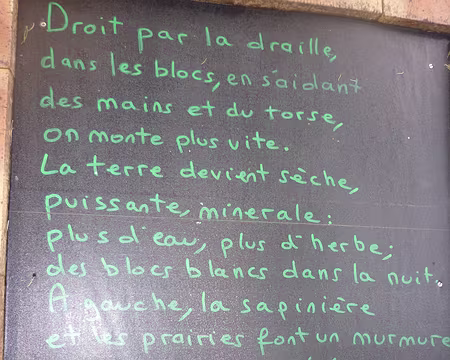 Droit par la draille,
dans les blocs, en s'aidant
des mains et du torse,
on monte plus vite.
La terre devient sèche,
puissante, minerale:
plus d'eau, plus d'herbe;
des blocs blancs dans la nuit.
A gauche, la sapinière
et les prairies font un murmure